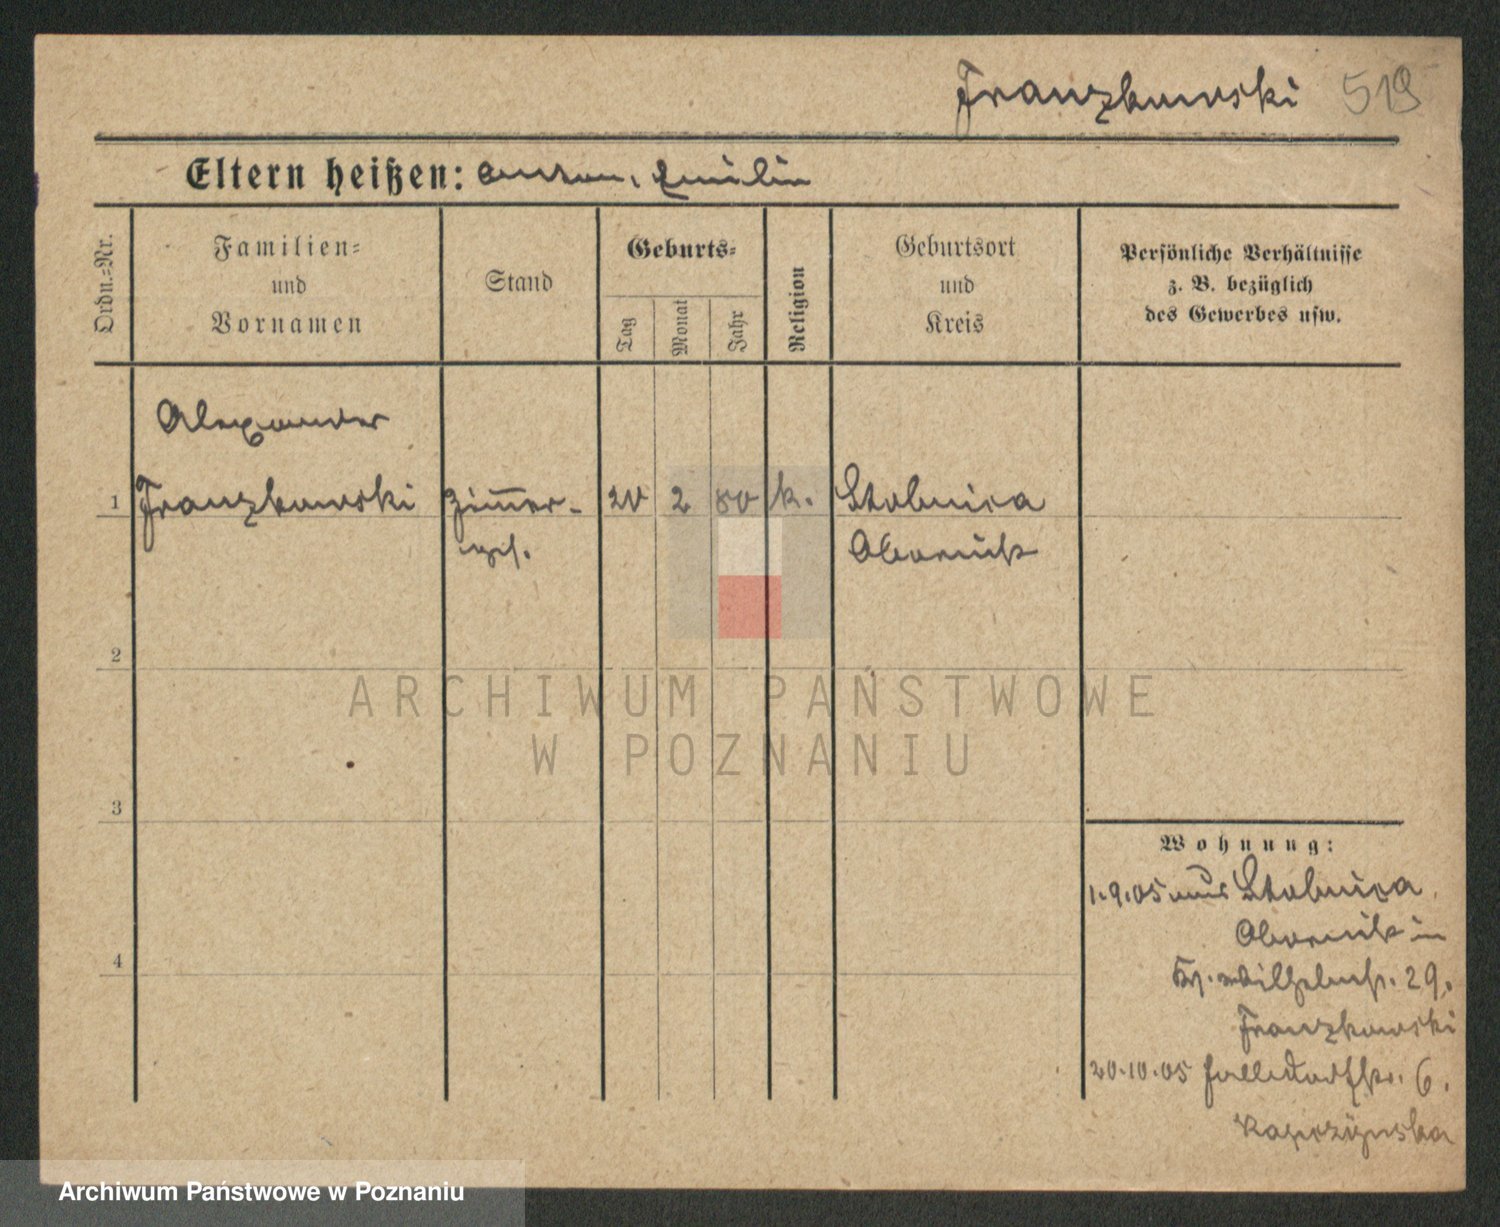 Franzkowski 519
Eltern heißen: Anton, Emilie
Ordn.=Nr.
Familien=
und
Vornamen
Stand
Geburts=
Tag
Monat
Jahr
Religion
Geburtsort
und
Kreis
Persönliche Verhältnisse
z. B. bezüglich
des Gewerbes usw.
Alexander
1 Franzkowski Zimmer- 20 2 80 k. Stobnica
ges. Obornik
2
3
4
Wohnung:
1.9.05 aus Stobnica
Obornik in
Wilhelmstr. 29.
Franzkowski
20.10.05 6.
Kaczyńska
ARCHIWUM PAŃSTWOWE
W POZNANIU
Archiwum Państwowe w Poznaniu